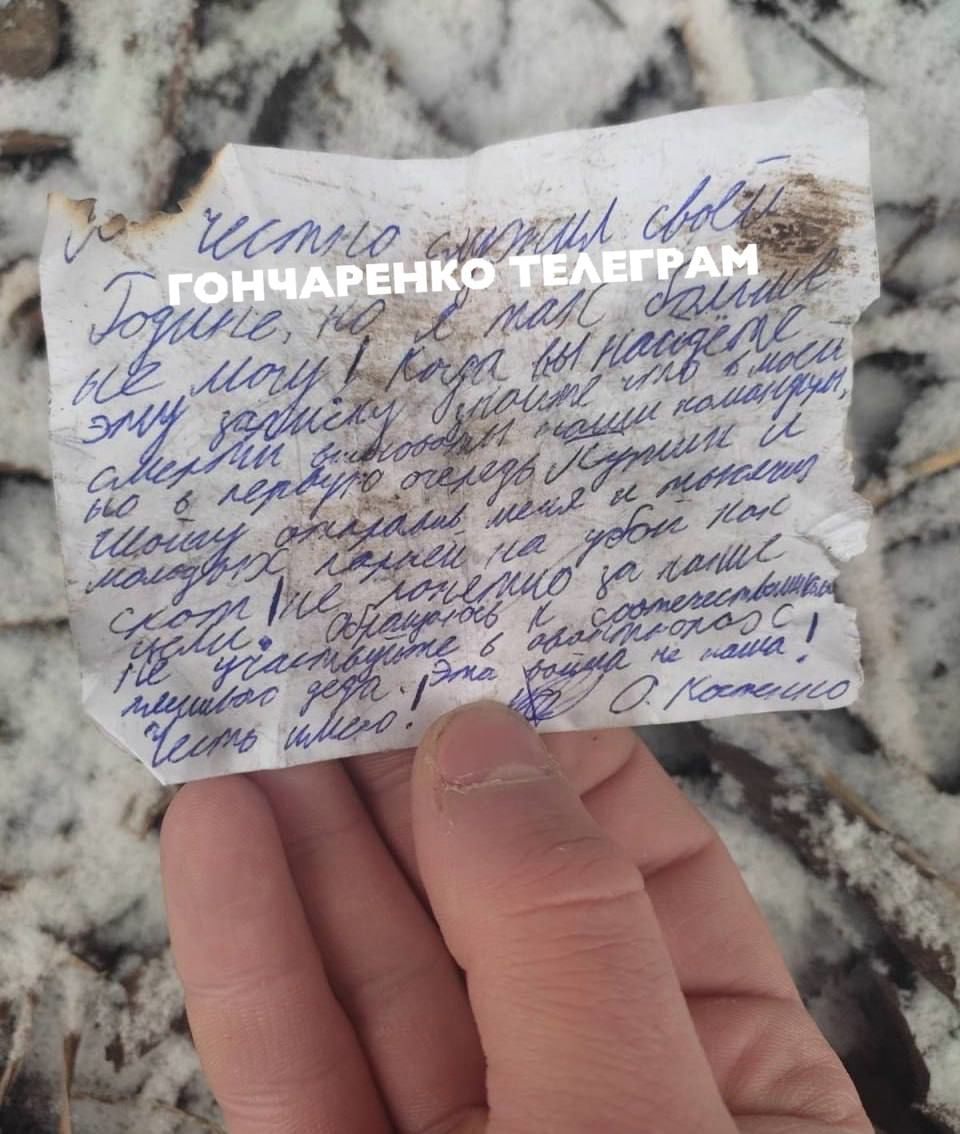 Я честно служил своей
ГОНЧАРЕНКО ТЕЛЕГРАМ
Родине, но я так больше
не могу! Когда вы найдёте
эту записку знайте что в моей
смерти виноваты наши командиры,
но в первую очередь
Шойгу отправив меня и
молодых парней на убой как
скот! не понятно за какие
цели. Обращаюсь к соотечественникам
не участвуйте в авантюрах с
деда. Эта война не наша!
Честь имею! О. Костенко